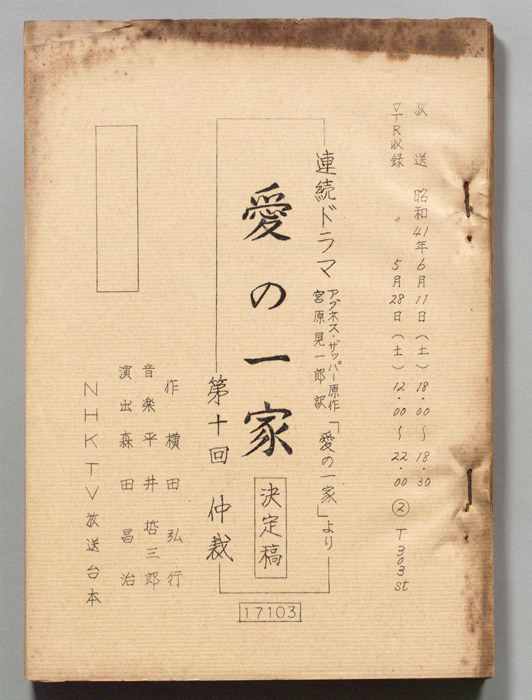 放送 昭和41年6月11日(土) 18.00〜18.30
VTR収録 〃 5月28日(土) 12.00〜22.00 ② T303st
連続ドラマ
アグネス・ザッパー原作
宮原晃一郎訳
「愛の一家」より
愛の一家
決定稿
第十回 仲裁
17103
作 横田弘行
音楽 平井哲三郎
演出 森田昌治
NHKTV放送台本